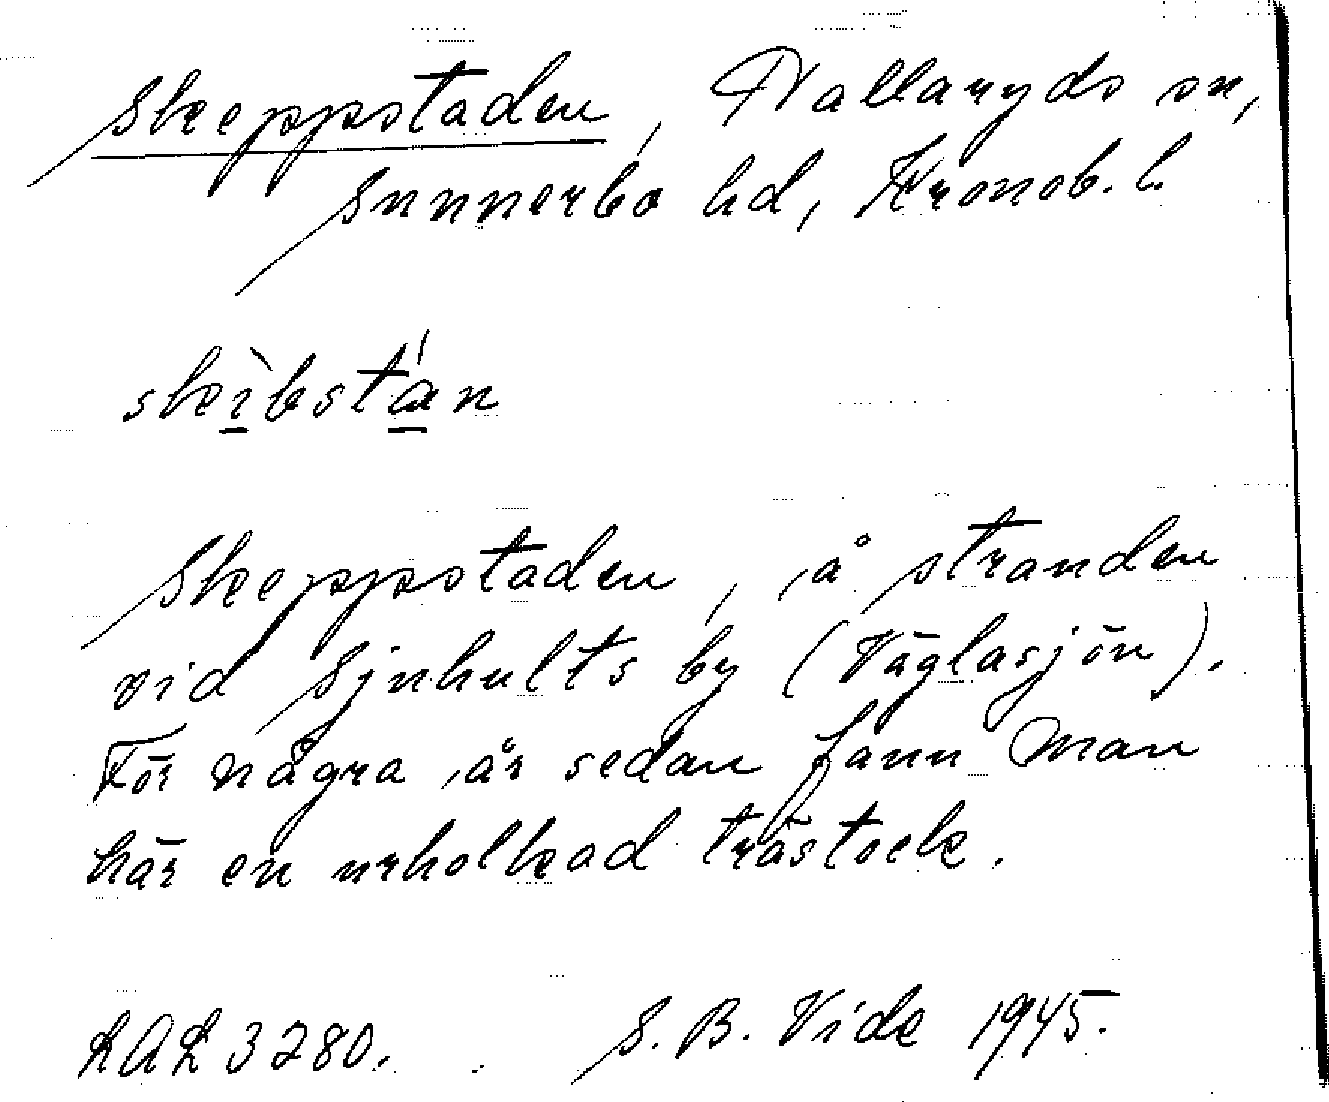 Skeppstaden, Vallaryds sn,
Sunnerbo hd, Kronob. l.
skìbstán
Skeppstaden, å stranden
vid Sjnhults by (Väglasjön).
För några år sedan fann man
här en urholkad trästock.
LAL 3280. S. B. Vide 1945.